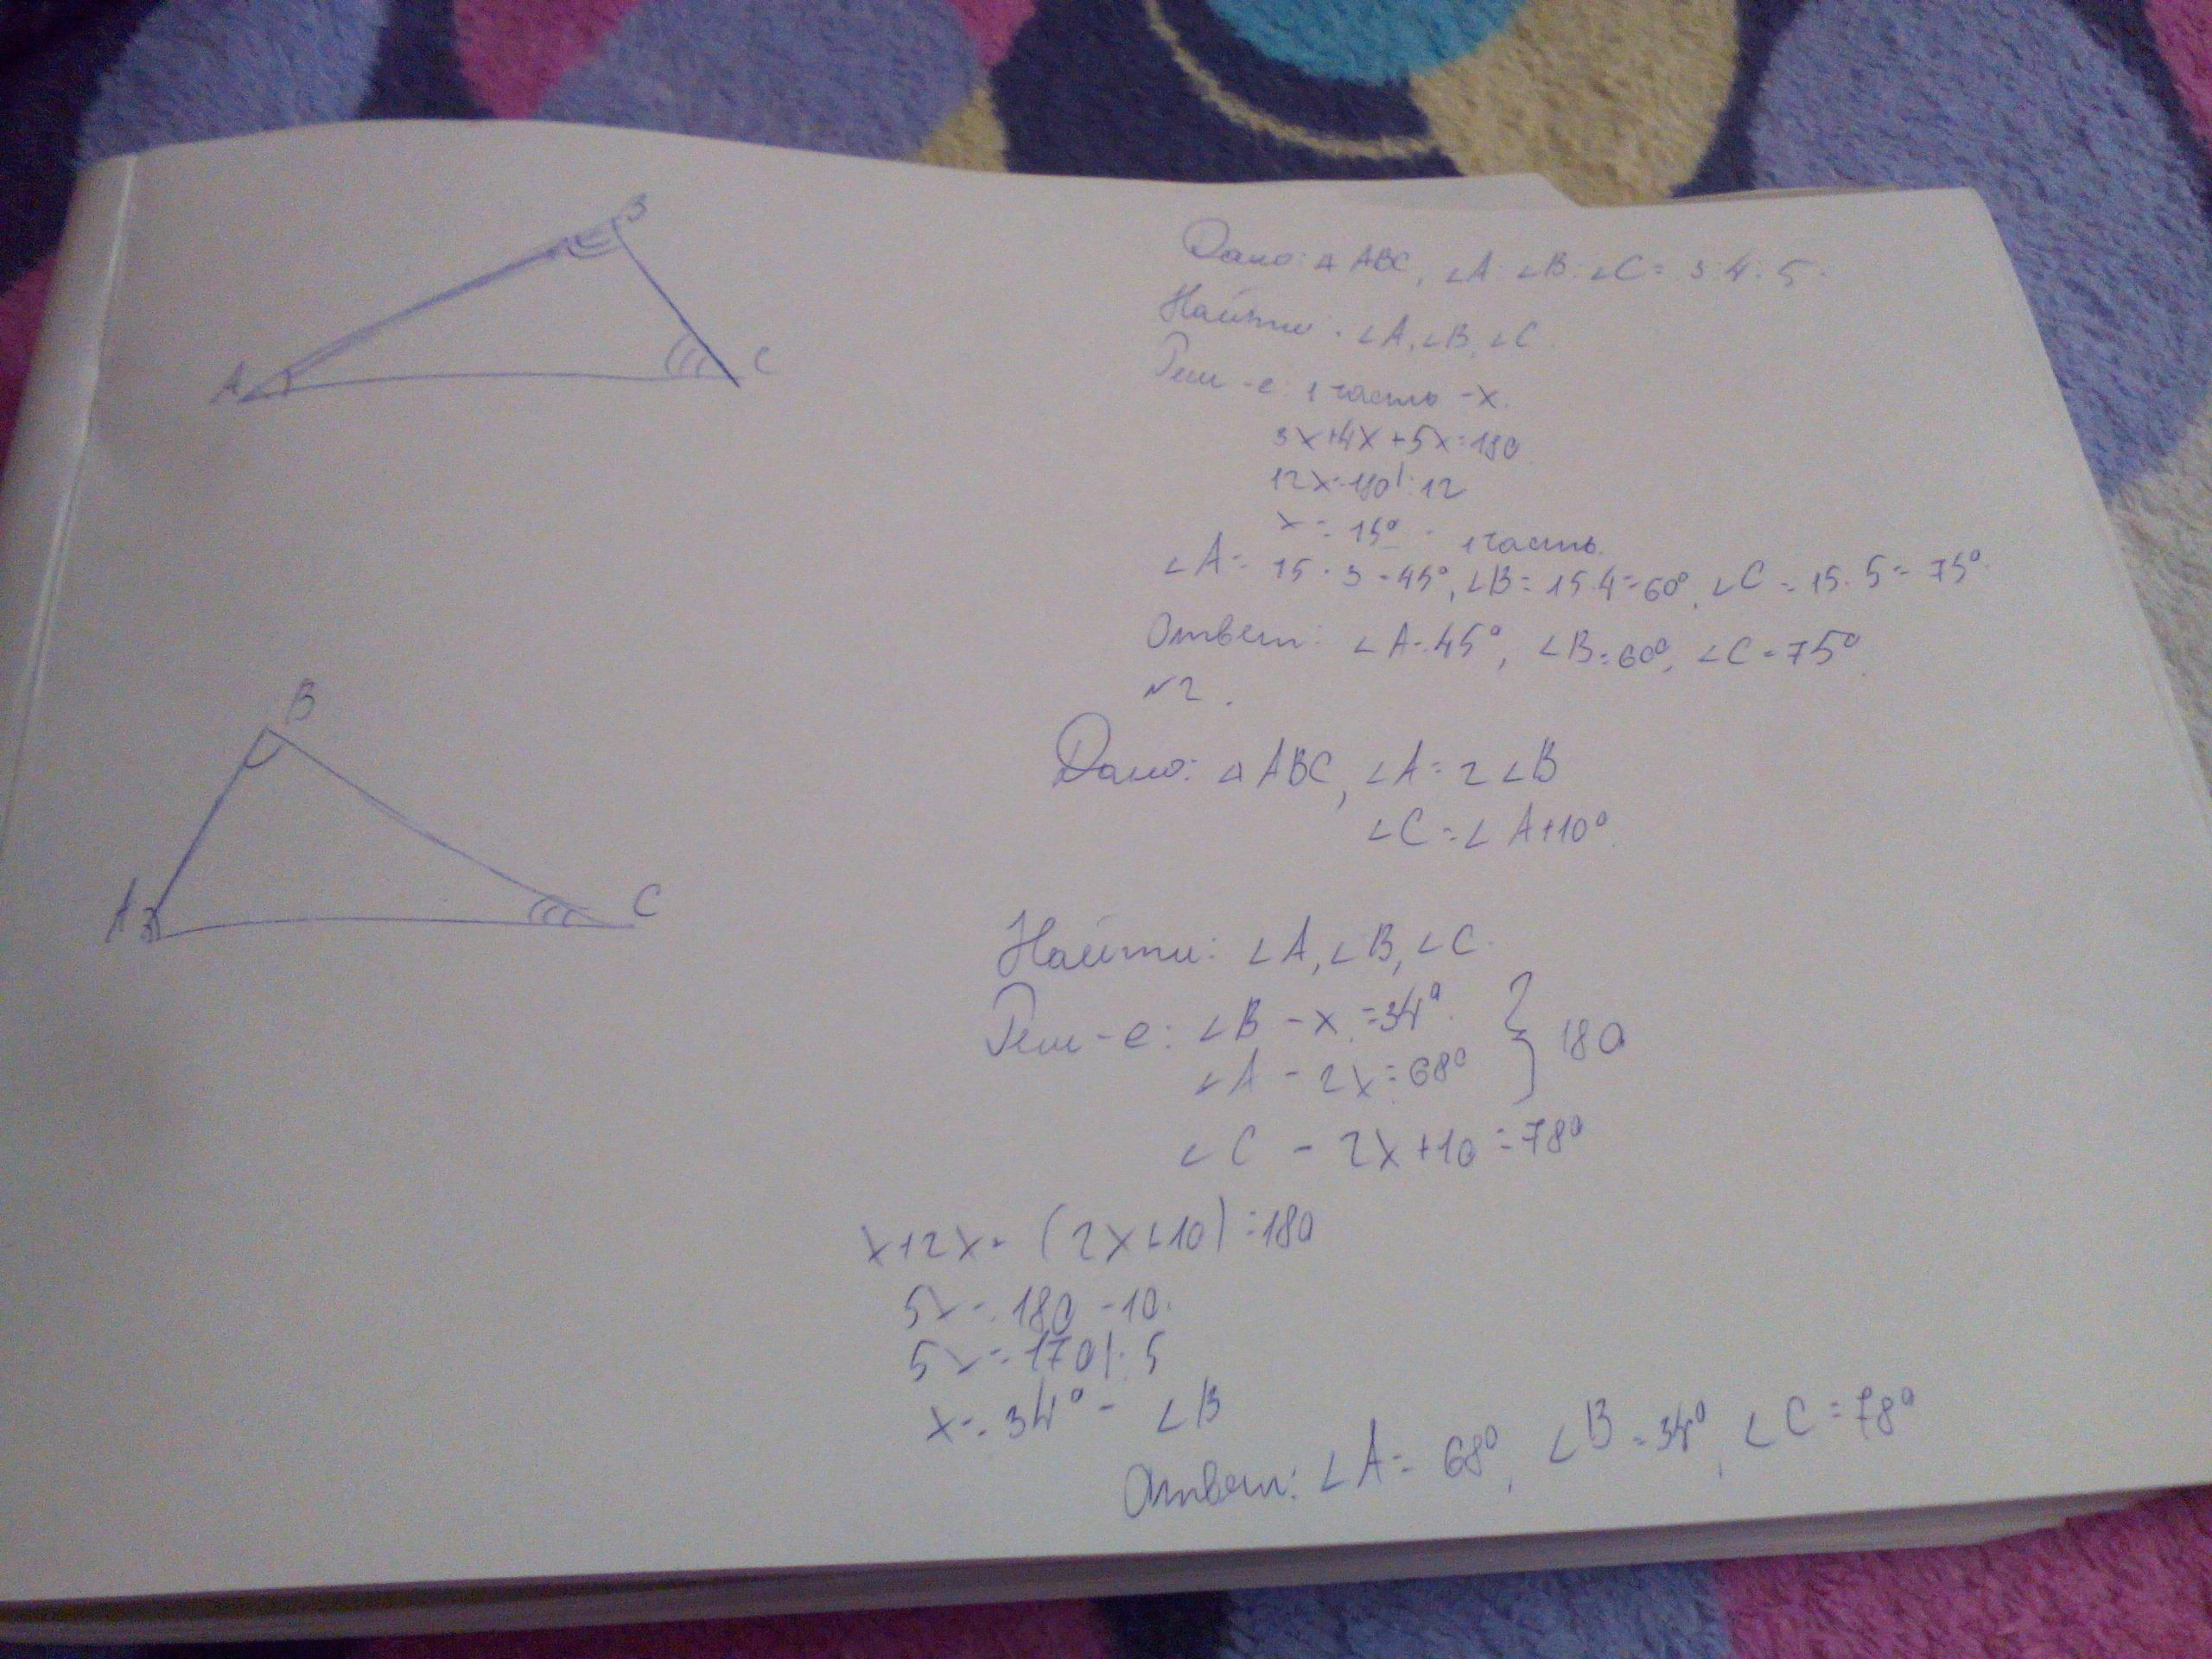 B
A
C
Дано: △ ABC, ∠A:∠B:∠C = 3:4:5.
Найти: ∠A, ∠B, ∠C.
Реш-е: 1 часть - x.
3x+4x+5x=180
12x=180|:12
x = 15° - 1 часть.
∠A = 15·3=45°, ∠B=15·4=60°, ∠C=15·5=75°.
Ответ: ∠A=45°, ∠B=60°, ∠C=75°.
№2.
B
A
C
Дано: △ ABC, ∠A=2∠B
∠C=∠A+10°.
Найти: ∠A, ∠B, ∠C.
Реш-е: ∠B - x = 34°.
∠A - 2x = 68° } 180
∠C - 2x+10=78°
x+2x+(2x+10)=180
5x=180-10.
5x=170|:5
x=34° - ∠B
Ответ: ∠A=68°, ∠B=34°, ∠C=78°